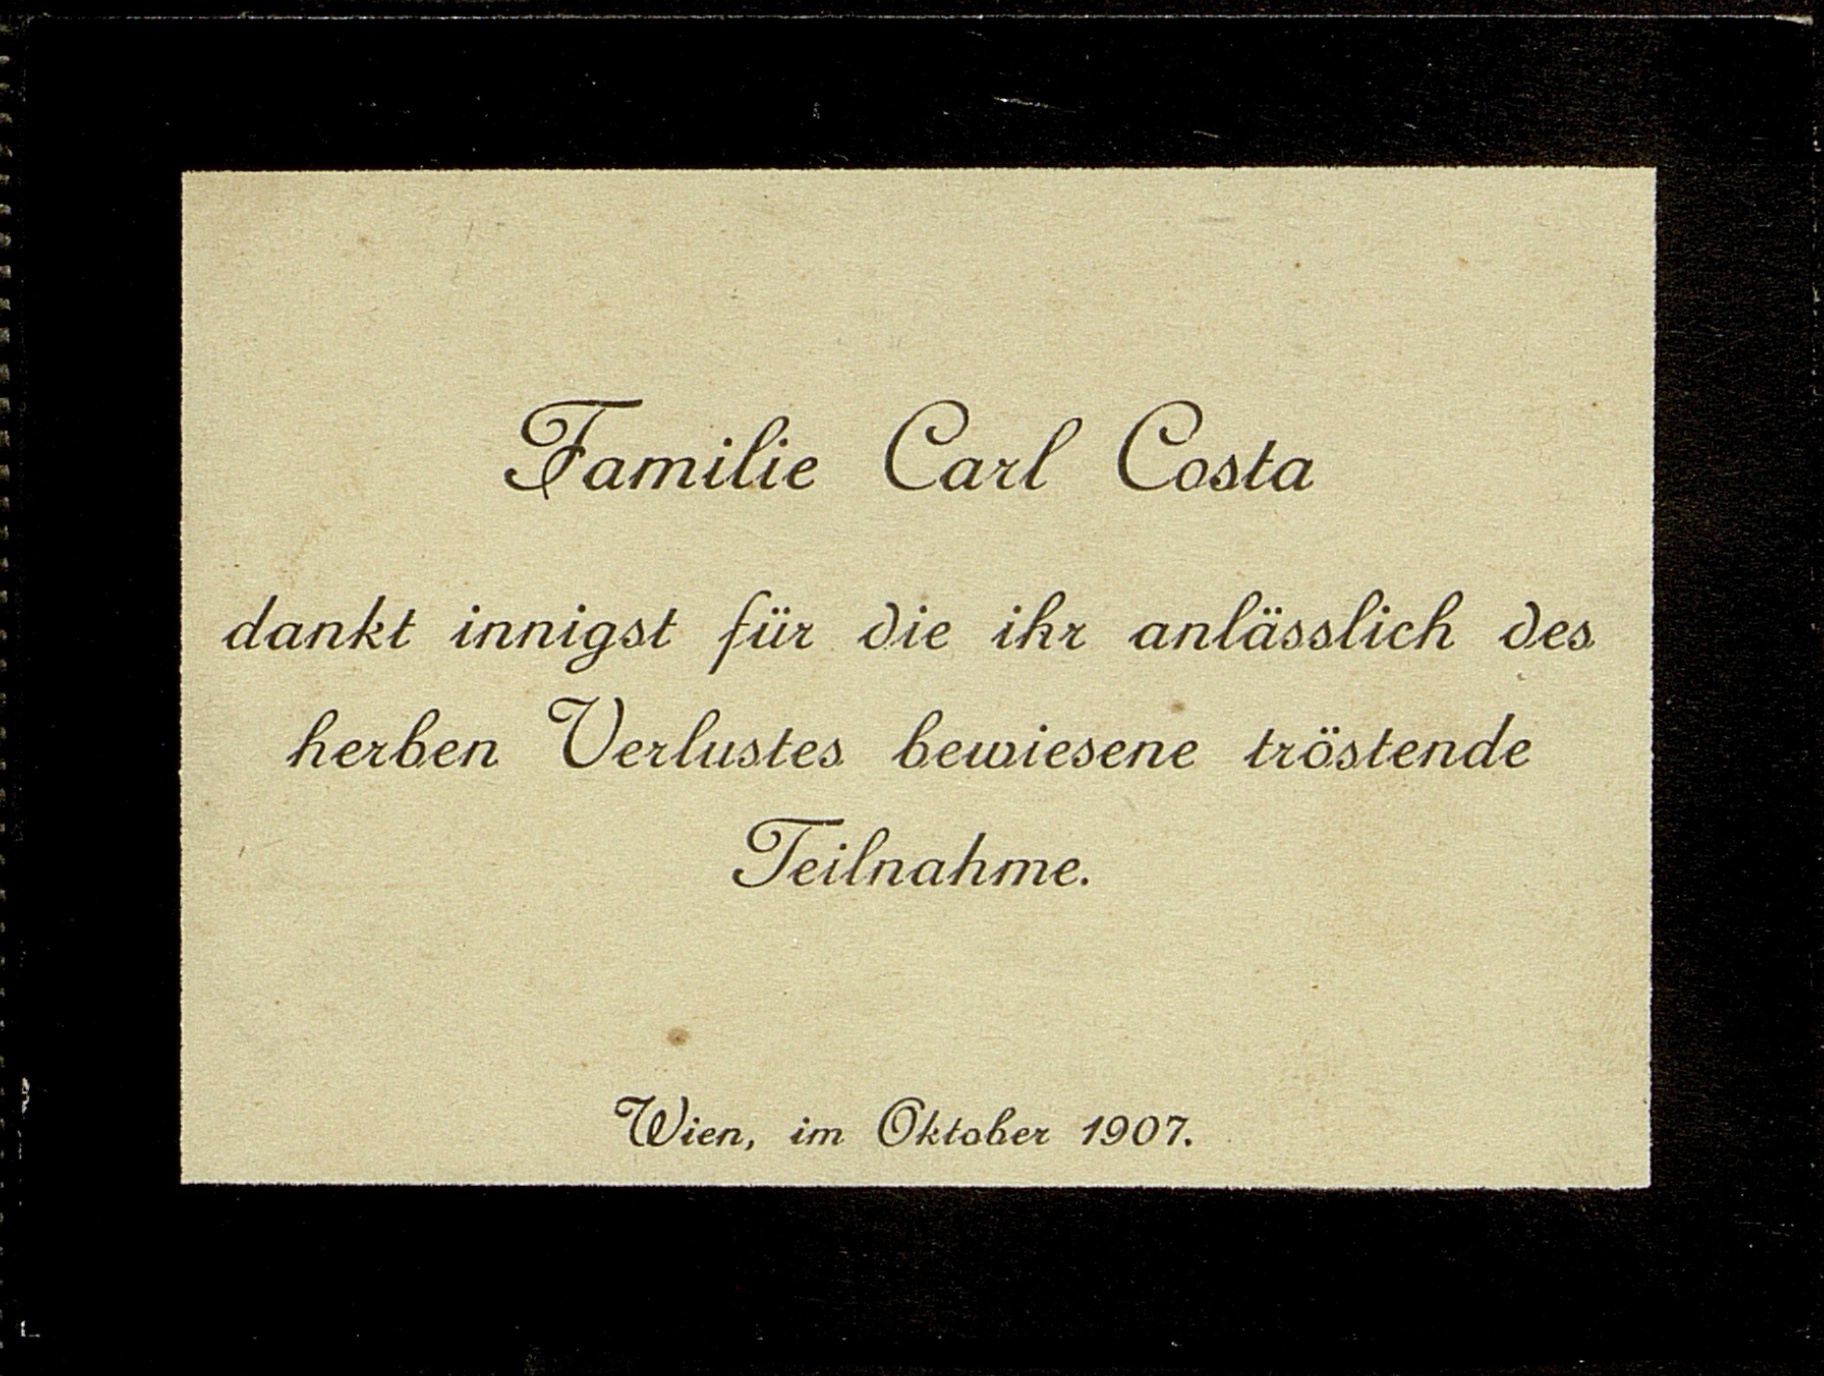 Familie Carl Costa
dankt innigst für die ihr anlässlich des
herben Verlustes bewiesene tröstende
Teilnahme.
Wien, im Oktober 1907.